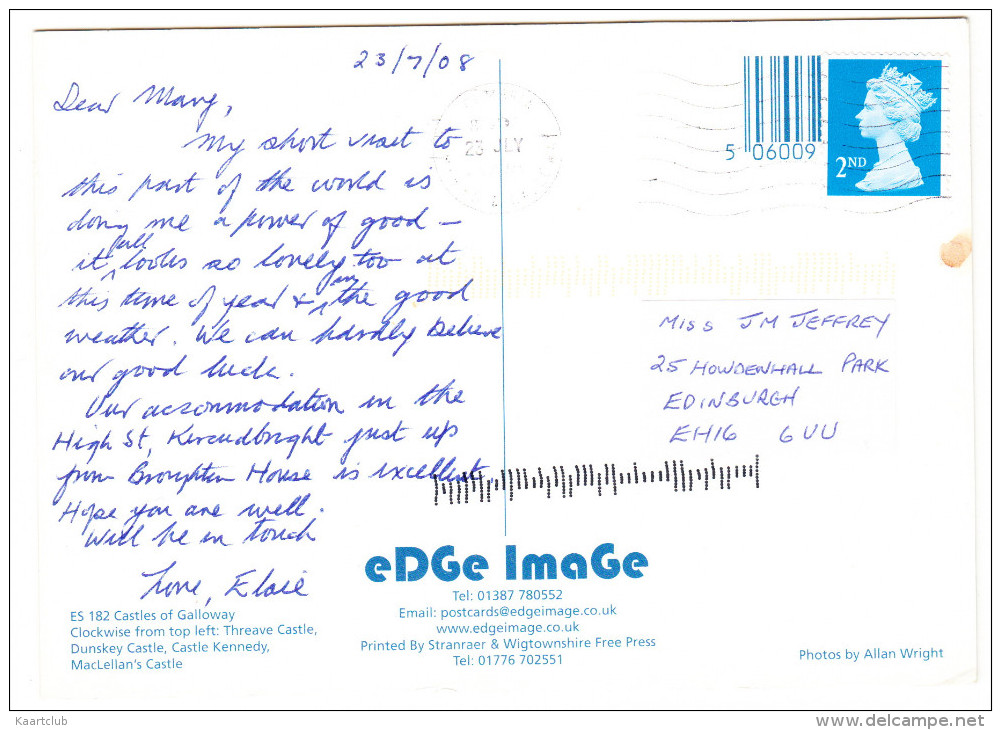 23/7/08
Dear Marg,
My short visit to
this part of the world is
doing me a power of good –
it all looks so lovely too at
this time of year & in the good
weather. We can hardly believe
our good luck.
Our accommodation in the
High St, Kircudbright just up
from Broughton House is excellent.
Hope you are well.
Will be in touch
Love, Elsie
23 JLY
5 06009
2ND
MISS JM JEFFREY
25 HOWDENHALL PARK
EDINBURGH
EH16 6UU
eDGe ImaGe
Tel: 01387 780552
Email: postcards@edgeimage.co.uk
www.edgeimage.co.uk
Printed By Stranraer & Wigtownshire Free Press
Tel: 01776 702551
ES 182 Castles of Galloway
Clockwise from top left: Threave Castle,
Dunskey Castle, Castle Kennedy,
MacLellan's Castle
Photos by Allan Wright
Kaartclub
www.delcampe.net